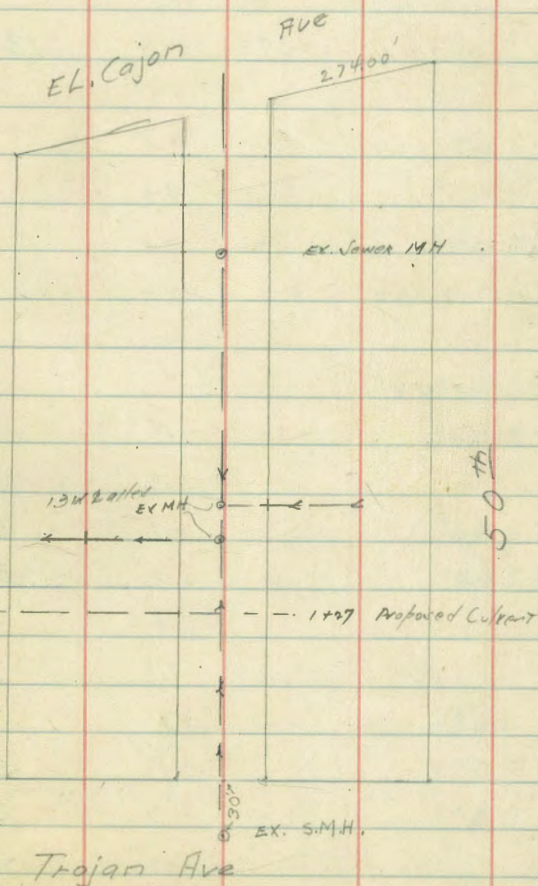 EL. Cajon Ave
274.00'
Ex. Sewer MH
EX MH
50th
1+27 Proposed Culvert
30'
EX. S.M.H.
Trojan Ave